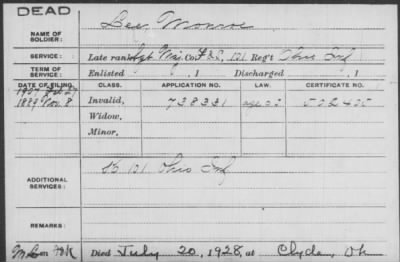 DEAD
NAME OF SOLDIER: Lee, Monroe
SERVICE: Late rank Sgt Maj, Co. F & S, 101 Reg't Ohio Inf
TERM OF SERVICE: Enlisted , 1 Discharged , 1
DATE OF FILING. CLASS. APPLICATION NO. LAW. CERTIFICATE NO.
1907
1889 Nov. 8 Invalid, 738331 502405
Widow,
Minor,
ADDITIONAL SERVICES: 101 Ohio Inf
REMARKS:
Died July 20, 1928, at Clyde, Oh